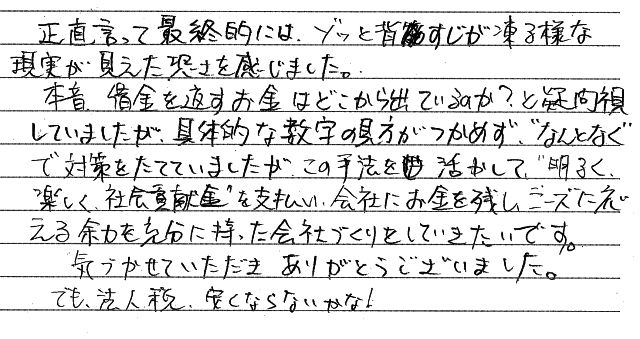 正直言って最終的には、ゾッと背すじが凍る様な
現実が見えた恐さを感じました。
本音、借金を返すお金はどこから出ているのか？と疑問視
していましたが、具体的な数字の見方がつかめず、"なんとなく"
で対策をたてていましたが、この手法を活かして、"明るく、
楽しく、社会貢献金"を支払い、会社にお金を残し、ニーズに応
える余力を充分に持った会社づくりをしていきたいです。
気づかせていただき ありがとうございました。
でも、法人税、安くならないかな！